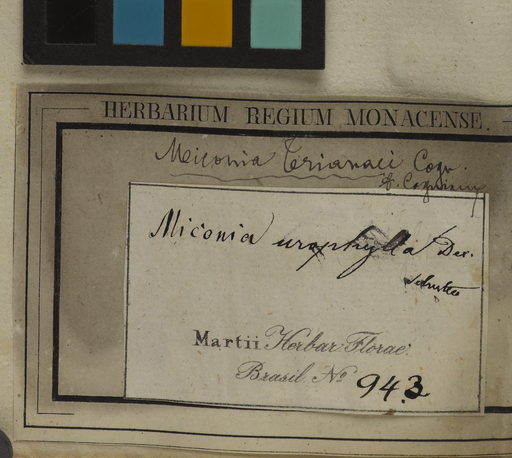 HERBARIUM REGIUM MONACENSE.
Miconia Trianaei Cogn.
Miconia urophylla Dec.
Martii Herbar. Florae
Brasil. No 943